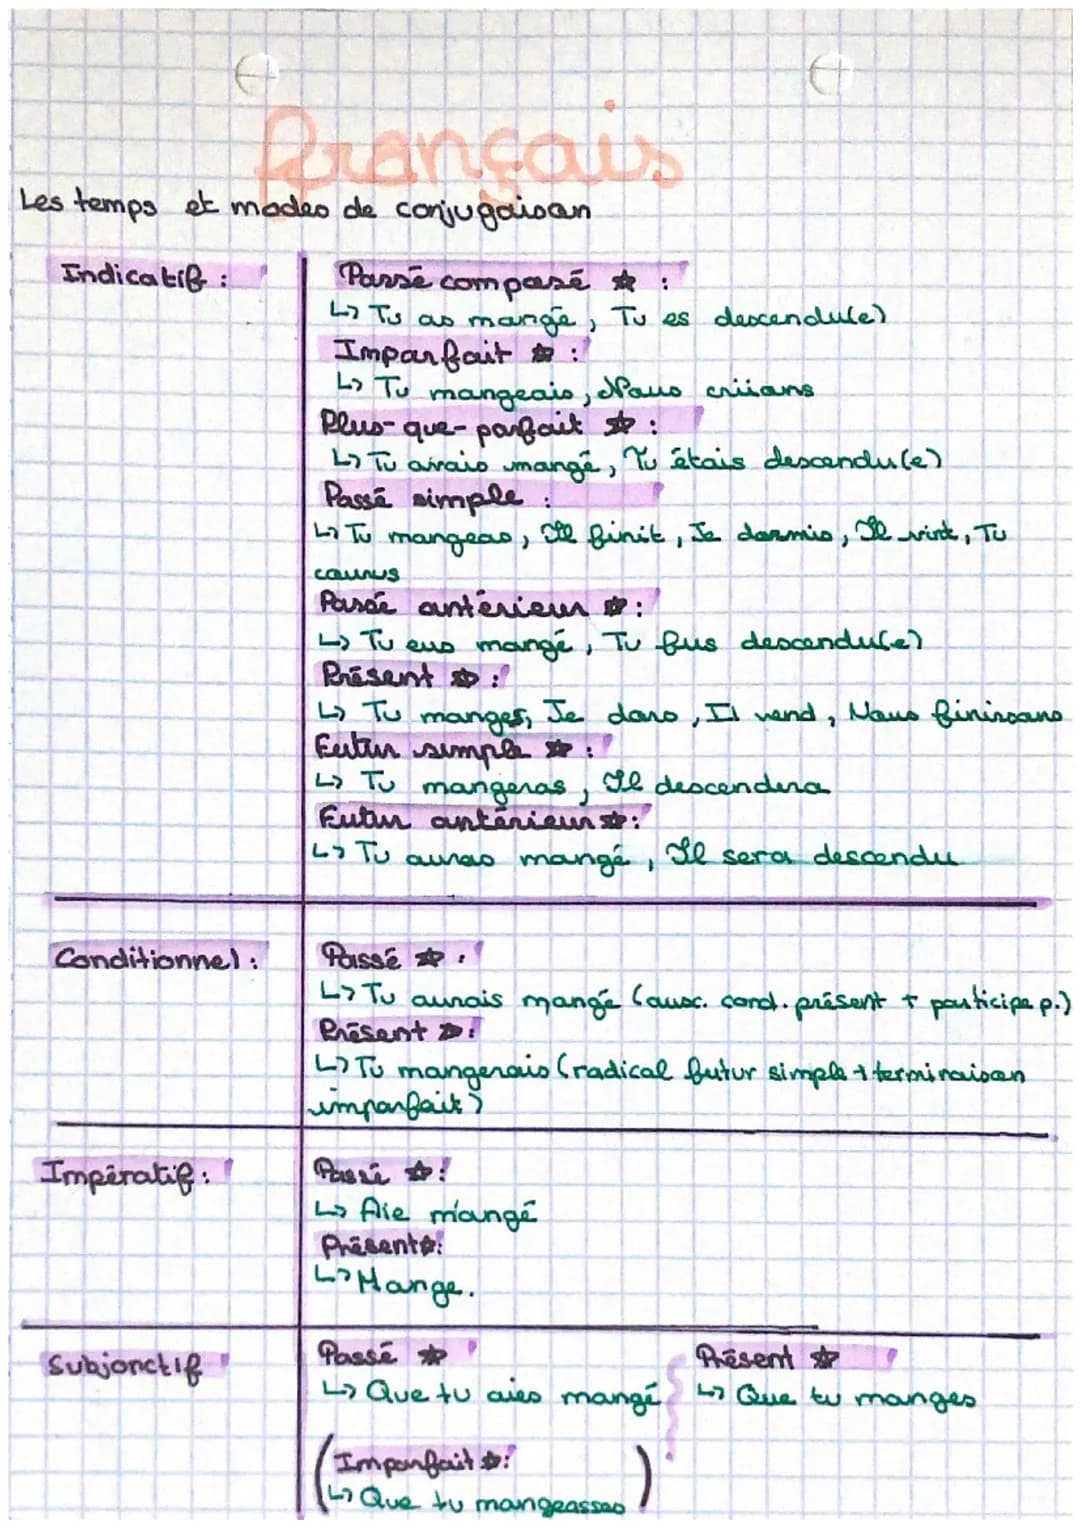 Français
Les temps et modes de conjugaison
Indicatif :
Passé composé ☆ :
↳ Tu as mangé, Tu es descendu(e)
Imparfait ☆ :
↳ Tu mangeais, Nous criions
Plus-que-parfait ☆ :
↳ Tu avais mangé, Tu étais descendu(e)
Passé simple :
↳ Tu mangeas, Il finit, Je dormis, Il vint, Tu
courus
Passé antérieur ☆ :
↳ Tu eus mangé, Tu fus descendu(e)
Présent ☆ :
↳ Tu manges, Je dors, Il vend, Nous finissons
Futur simple ☆ :
↳ Tu mangeras, Il descendra
Futur antérieur ☆ :
↳ Tu auras mangé, Il sera descendu
Conditionnel :
Passé ☆ :
↳ Tu aurais mangé (aux. cond. présent + participe p.)
Présent ☆ :
↳ Tu mangerais (radical futur simple + terminaison
imparfait)
Impératif :
Passé ☆ :
↳ Aie mangé
Présent ☆ :
↳ Mange.
Subjonctif
Passé ☆
↳ Que tu aies mangé
Présent ☆
↳ Que tu manges
(Imparfait ☆ :
↳ Que tu mangeasses)